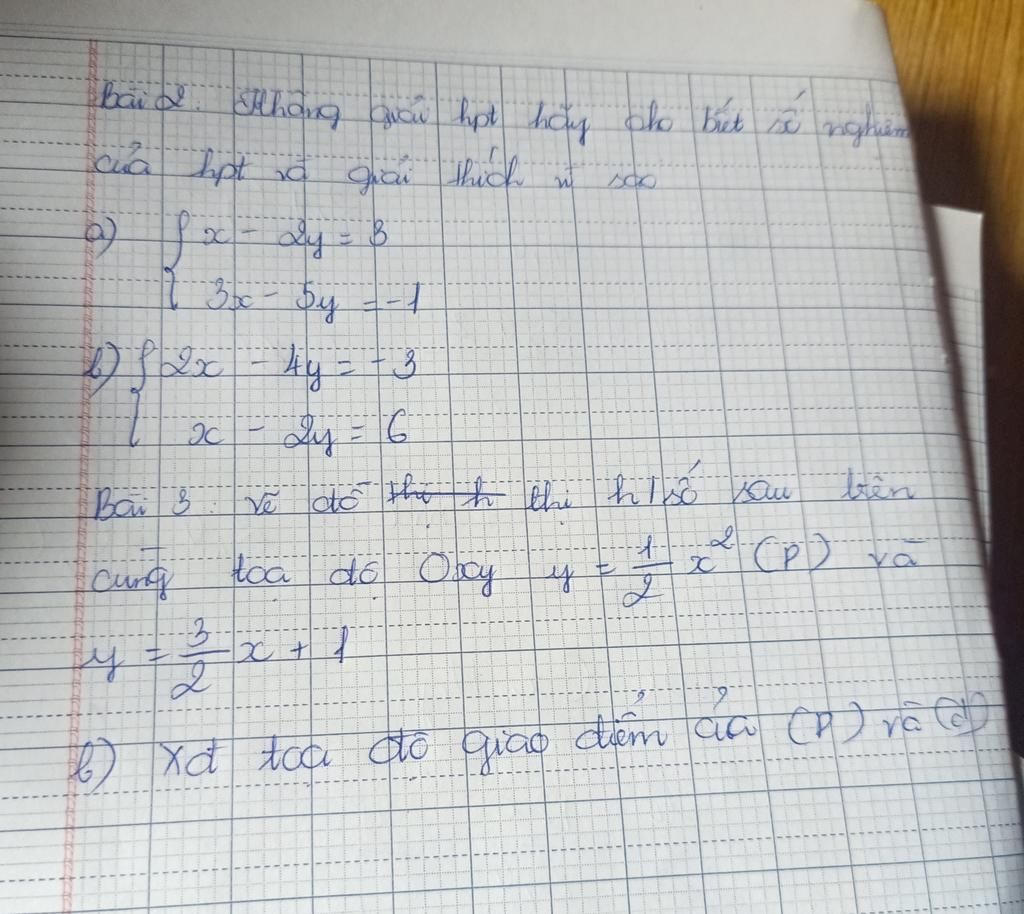 Bài 2. Không giải hpt hãy cho biết số nghiệm
của hpt và giải thích vì sao
a) { x - 2y = 3
3x - 5y = -1
b) { 2x - 4y = -3
x - 2y = 6
Bài 3: vẽ đồ thi h/số sau trên
cùng toạ độ Oxy y = 1/2 x² (P) và
y = 3/2 x + 1
b) Xđ toạ độ giao điểm của (P) và (d)